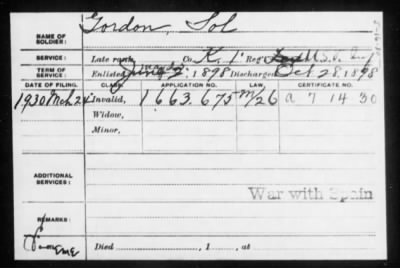 Gordon, Sol
NAME OF SOLDIER:
SERVICE: Late rank, Co. K, 1 Reg't U.S. V. Inf
TERM OF SERVICE: Enlisted June 2, 1898 Discharged Oct 28, 1898
DATE OF FILING. CLASS. APPLICATION NO. LAW. CERTIFICATE NO.
1930 Mch 24 Invalid, 1663.675 M/26 a 7 14 30
Widow,
Minor,
ADDITIONAL SERVICES:
War with Spain
REMARKS:
Died , 1 , at